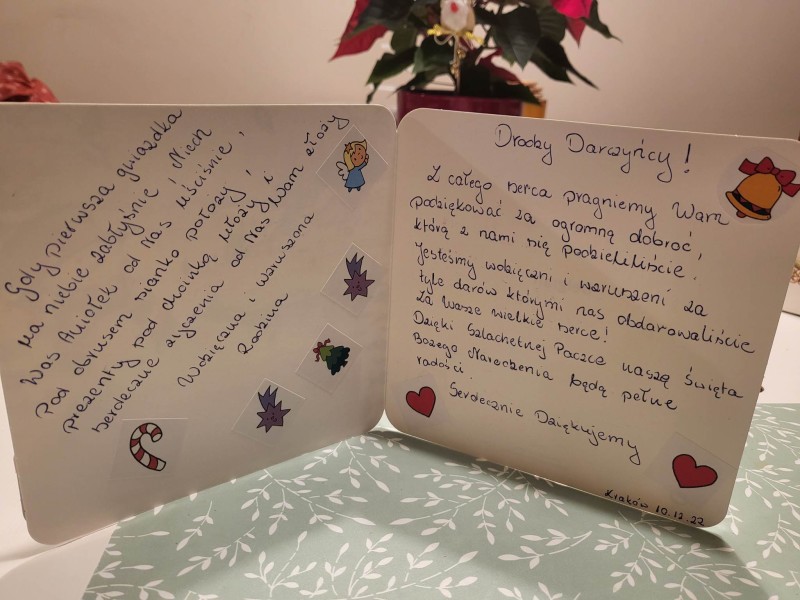 Gdy pierwsza gwiazdka
na niebie zabłyśnie Niech
Was Aniołek od Nas uściśnie,
Pod obrusem sianko położy,
prezenty pod choinką ułoży i
serdeczne życzenia od Nas Wam złoży
Wdzięczna i wzruszona
Rodzina
Drodzy Darczyńcy!
Z całego serca pragniemy Wam
podziękować za ogromną dobroć,
którą z nami się podzieliliście.
Jesteśmy wdzięczni i wzruszeni za
tyle darów którymi nas obdarowaliście
Za Wasze wielkie serce!
Dzięki Szlachetnej Paczce nasze Święta
Bożego Narodzenia będą pełne
radości.
Serdecznie Dziękujemy
Kraków 10.12.22